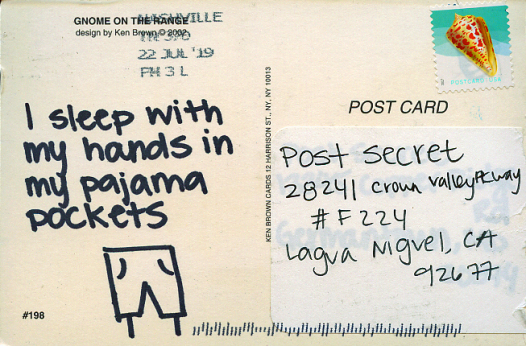 GNOME ON THE RANGE
design by Ken Brown © 2002
NASHVILLE
TN 370
22 JUL '19
PM 3 L
I sleep with
my hands in
my pajama
pockets
#198
KEN BROWN CARDS.12 HARRISON ST., NY, NY 10013
POSTCARD USA
POST CARD
Post Secret
28241 Crown Valley Pkway
#F224
Laguna Niguel, CA
92677